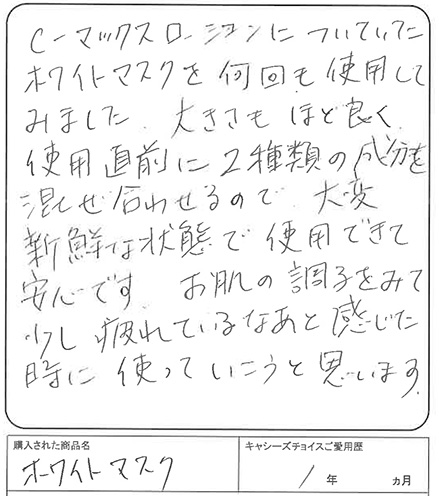 Cーマックスローションについていた
ホワイトマスクを何回も使用して
みました。大きさもほど良く
使用直前に2種類の成分を
混ぜ合わせるので 大変
新鮮な状態で使用できて
安心です。お肌の調子をみて
少し疲れているなあと感じた
時に使っていこうと思います。
購入された商品名
ホワイトマスク
キャシーズチョイスご愛用歴
1年 カ月